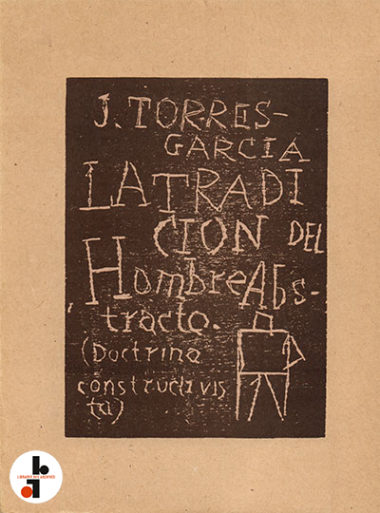 J. TORRES-
GARCÍA
LA TRADI
CION DEL
HombreAbs-
tracto.
(Doctrina
constructivis
ta)